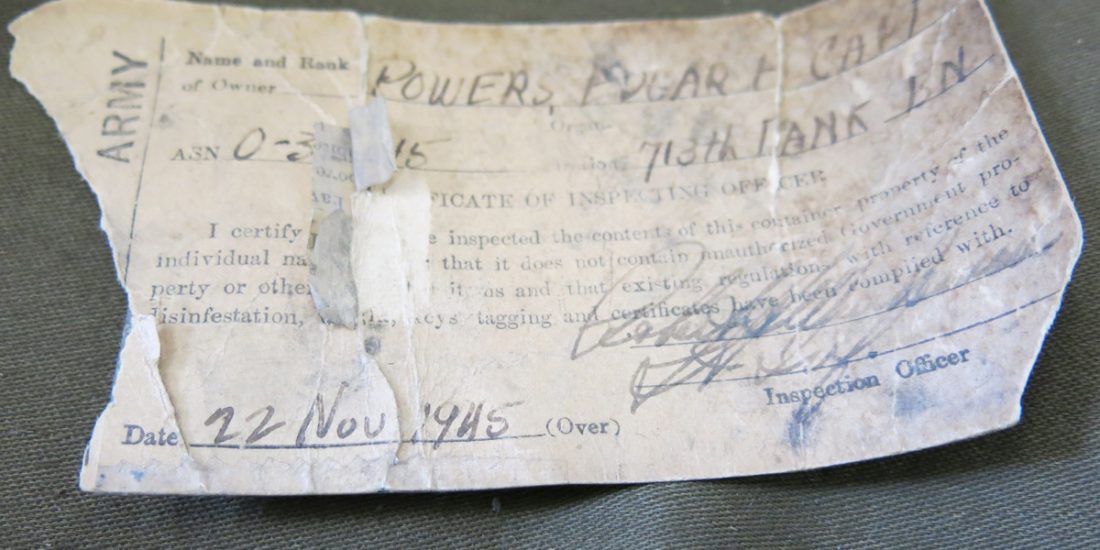 ARMY
Name and Rank
of Owner POWERS, EDGAR F CAPT
Organ-
ASN O-3 15 713th TANK BN
FICATE OF INSPECTING OFFICER
I certify e inspected the contents of this container property of the
individual na that it does not contain unauthorized Government pro-
perty or othe items and that existing regulations with reference to
disinfestation, keys tagging and certificates have been complied with.
Inspection Officer
Date 22 Nov 1945 (Over)